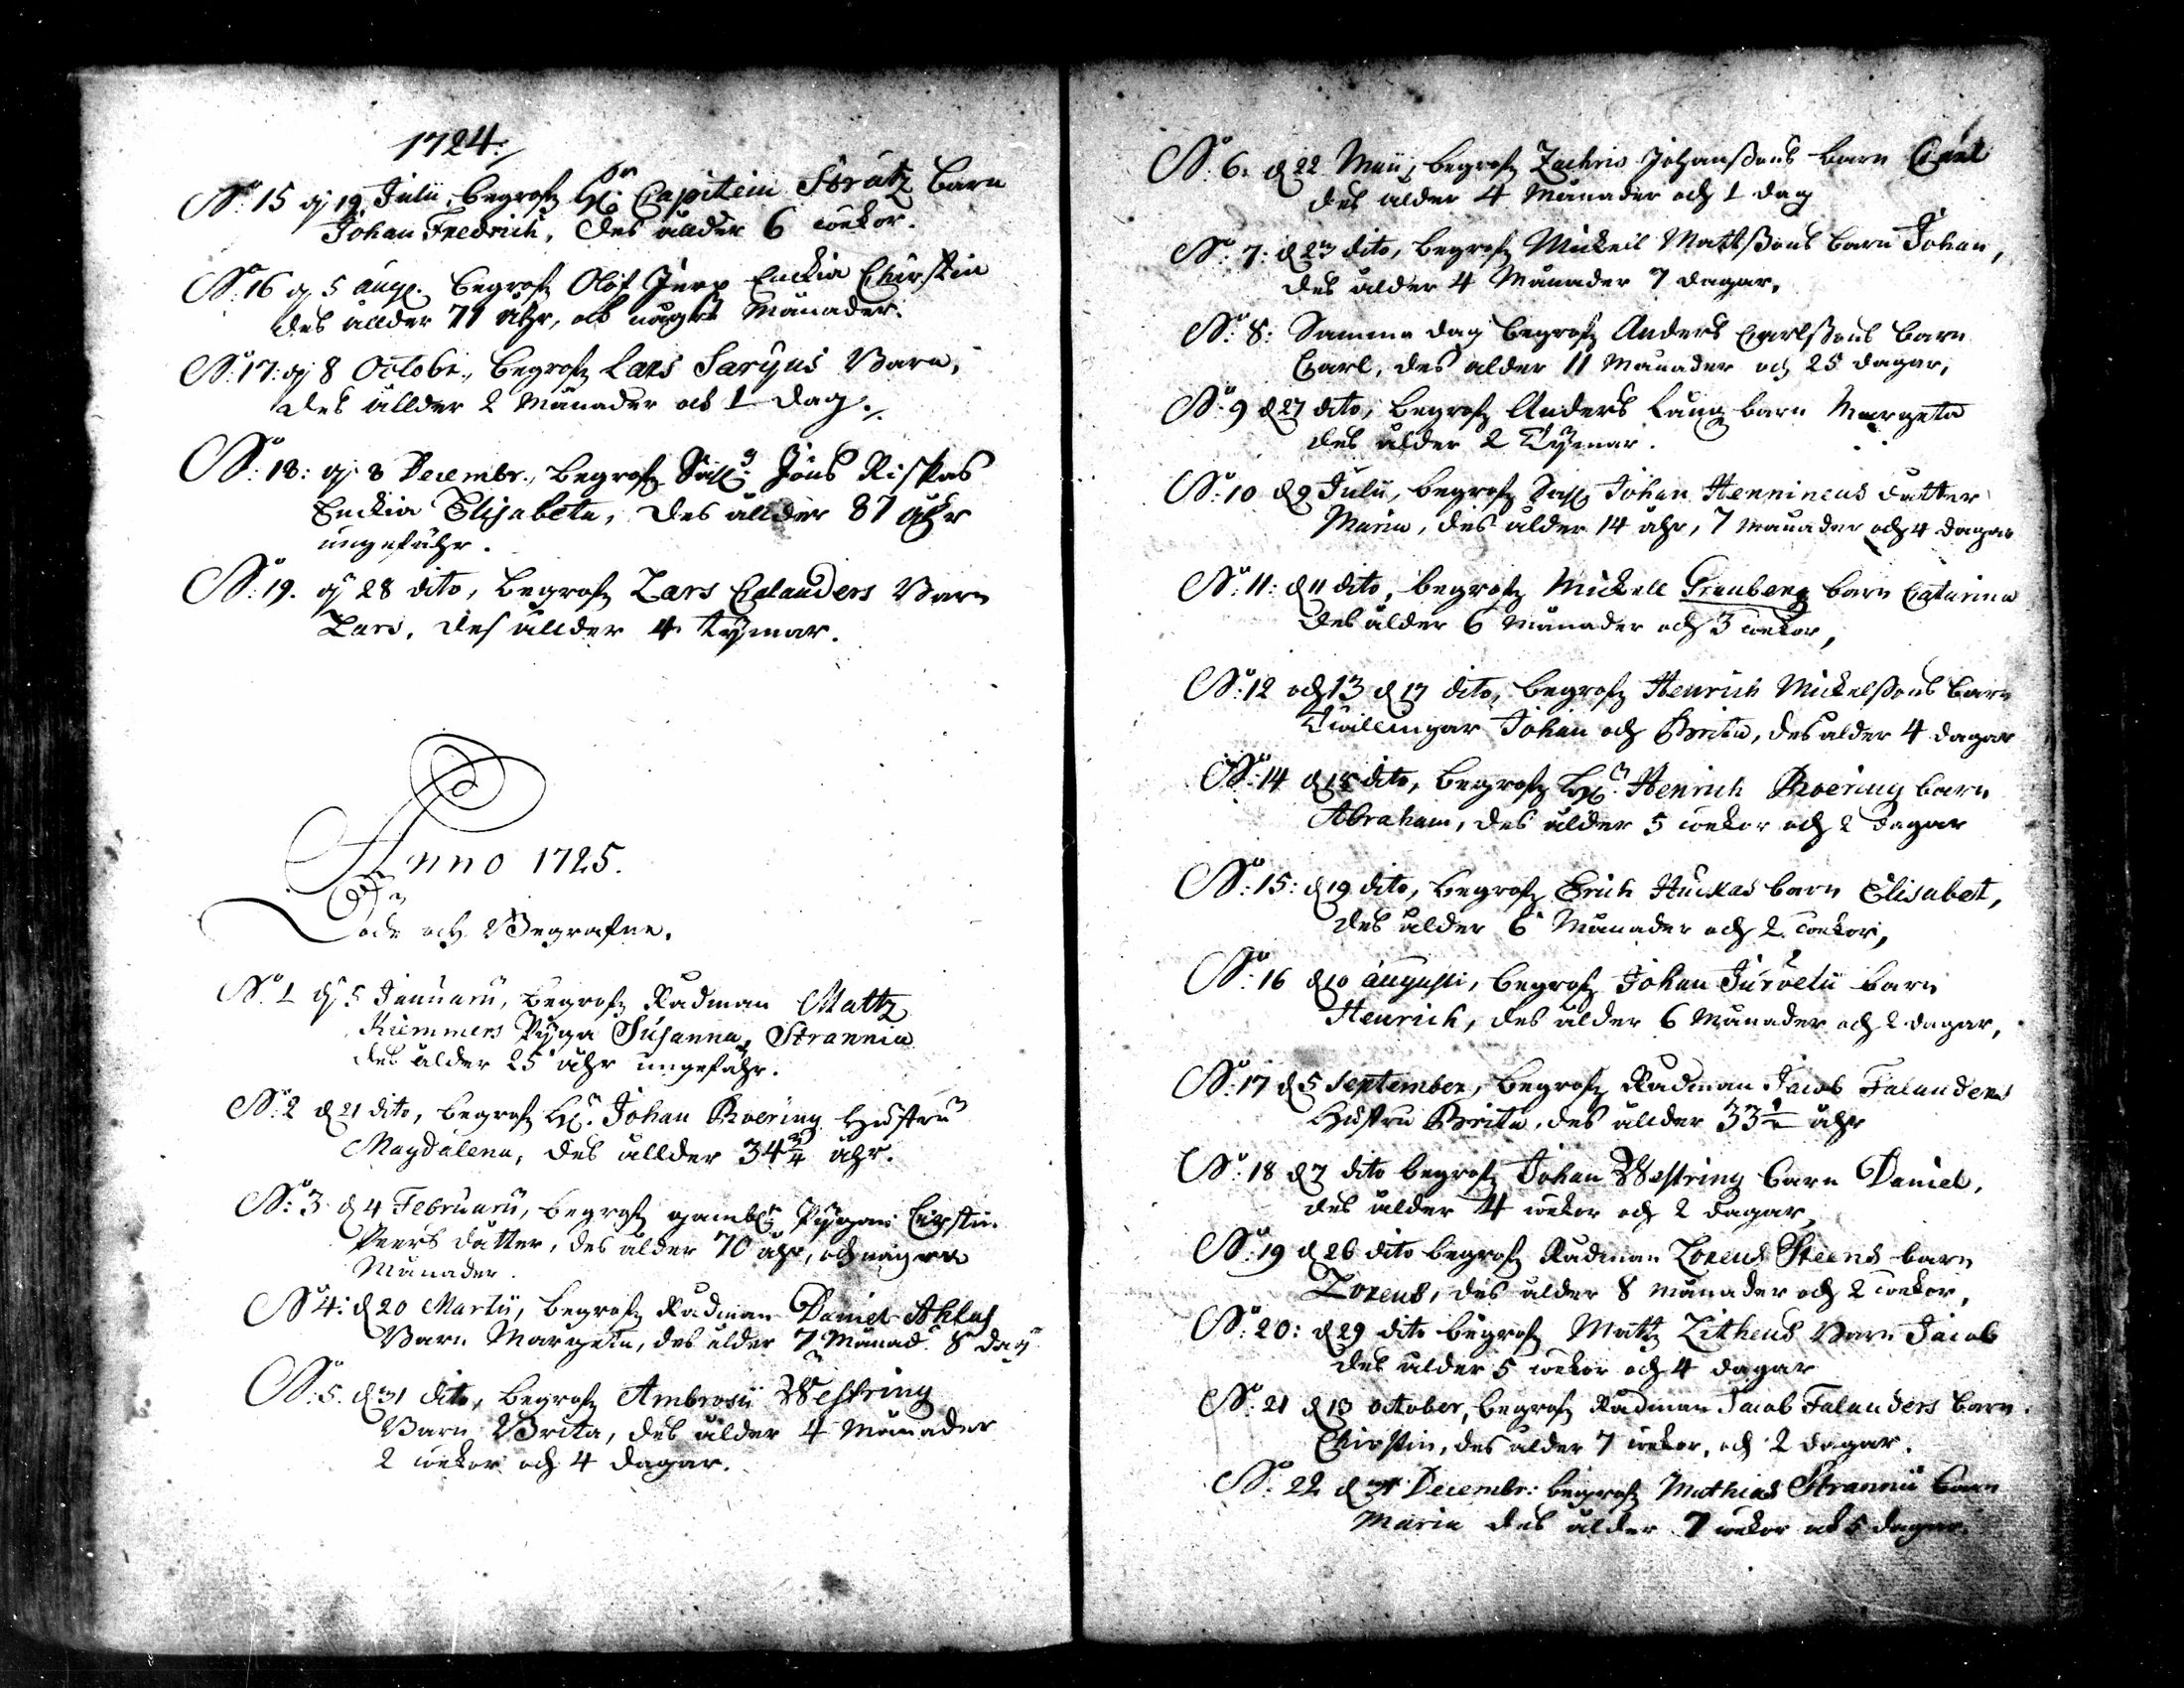 1724:
No: 15 d 19 Julii, begrofz H:r Capitein Strutz barn
Johan Fredrich, des ållder 6 wekor.
No: 16 d 5 aug. begrofz Olof Jerp Enckia Chirstin
des ållder 71 åhr, ock några Månader.
No: 17: d 8 Octobr., begrofz Lars Saxyns Barn,
des ållder 2 Månader ock 1 dag.
No: 18: d 8 Decembr., begrofz Sahl: Jöns Riskas
Enckia Elisabeta, des ållder 87 åhr
ungefähr.
No: 19. d 28 dito, begrofz Lars Calanders Barn
Lars, des ållder 4 tijmar.
Anno 1725.
Döde och Begrafne.
No: 1 d 5 Januarii, begrofz Radman Mattz
Kiemmers Pyga Susanna, Strannia
des alder 25 åhr ungefähr.
No: 2 d 21 dito, begrofz H:r Johan Roering Hustru
Magdalena, des ållder 34 3/4 åhr.
No: 3 d 4 Februarii, begrofz gambl Pygan Cirstin
Peers dåtter, des ålder 70 åhr, och några
Månader.
No: 4: d 20 Martii, begrofz Radman Daniel Ahlas
Barn Margeta, des ålder 7 Månad: 8 dag
No: 5. d 31 dito, begrofz Ambrosii Westring
Barn Brita, des ålder 4 Månader
2 wekor och 4 dagar.
No: 6. d 22 Maij, begrofz Zachris Johanssons barn Carl
des alder 4 Månader och 1 dag
No: 7: d 23 dito, begrofz Mickell Mattssons barn Johan,
des ålder 4 Månader 7 dagar,
No: 8: Samma dag begrofz Anders Carlssons barn
Carl, des alder 11 Månader och 25 dagar,
No: 9 d 27 dito, begrofz Anders Lång barn Margeta
des ålder 2 Tijmar.
No: 10 d 9 Julii, begrofz Sahl Johan Hennineus datter
Maria, des ålder 14 åhr, 7 månader och 4 dagar
No: 11: d 11 dito, begrofz Mickell Granberg barn Catarina
des ålder 6 månader och 3 wekor,
No: 12 och 13 d 17 dito, begrofz Henrich Mickelssons barn
Twillingar Johan och Brita, des alder 4 dagar
No: 14 d 18 dito, begrofz H:r Henrich Roering barn
Abraham, des ålder 5 wekor och 2 dagar
No: 15: d 19 dito, begrofz Erich Huckas barn Elisabet,
des ålder 6 Månader och 2 wekor,
No: 16 d 10 augusti, begrofz Johan Jurvelii barn
Henrich, des ålder 6 Månader och 2 dagar,
No: 17 d 5 September, begrofz Radman Jacob Falanders
Hustru Brita, des ållder 33 1/2 åhr
No: 18 d 7 dito begrofz Johan Westring barn Daniel,
des ålder 4 wekor och 2 dagar,
No: 19 d 26 dito begrofz Radman Lorens Steens barn
Lorens, des ålder 8 månader och 2 wekor,
No: 20: d 29 dito begrofz Mattz Litheus Barn Jacob
des ålder 5 wekor och 4 dagar
No: 21 d 13 october, begrofz Radman Jacob Falanders barn
Chirstin, des alder 7 wekor, och 2 dagar.
No: 22 d Decembr: begrofz Mathias Strannii barn
Maria des ålder 7 wekor ock 5 dagar.